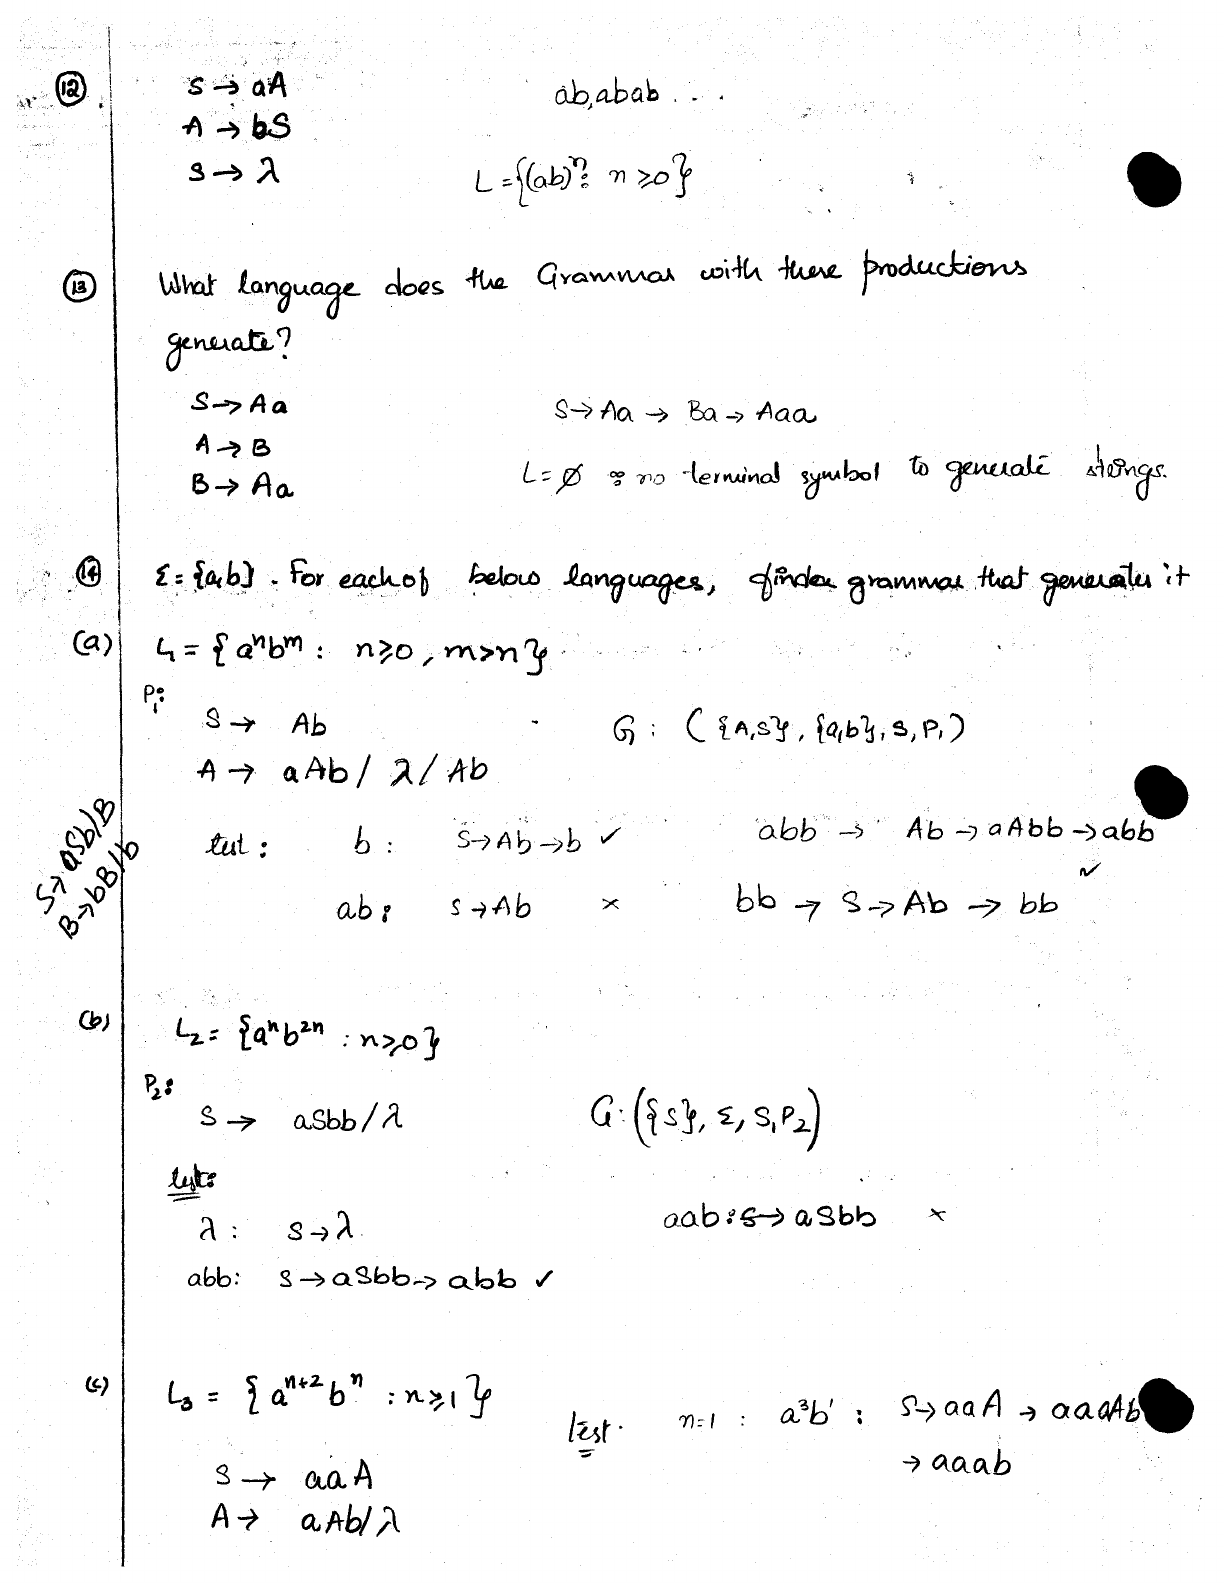 (12) S → aA ab, abab ...
A → bS
S → λ L = {(ab)ⁿ : n ≥ 0}
(13) What language does the Grammar with these productions
generate?
S → Aa S → Aa → Ba → Aaa
A → B
B → Aa L = ∅ ∵ no terminal symbol to generate strings.
(14) Σ = {a,b}. For each of below languages, find a grammar that generates it
(a) L₁ = {aⁿbᵐ : n ≥ 0, m > n}
P₁:
S → Ab G : ({A,S}, {a,b}, S, P₁)
A → aAb / λ / Ab
S → aSb/B
B → bB/b
test : b : S → Ab → b ✓ abb → Ab → aAbb → abb ✓
ab : S → Ab × bb → S → Ab → bb
(b) L₂ = {aⁿb²ⁿ : n ≥ 0}
P₂:
S → aSbb / λ G : ({S}, Σ, S, P₂)
test:
λ : S → λ aab : S → aSbb ×
abb: S → aSbb → abb ✓
(c) L₃ = {aⁿ⁺²bⁿ : n ≥ 1}
test. n=1 : a³b¹ : S → aaA → aaaAb
→ aaab
S → aaA
A → aAb/λ